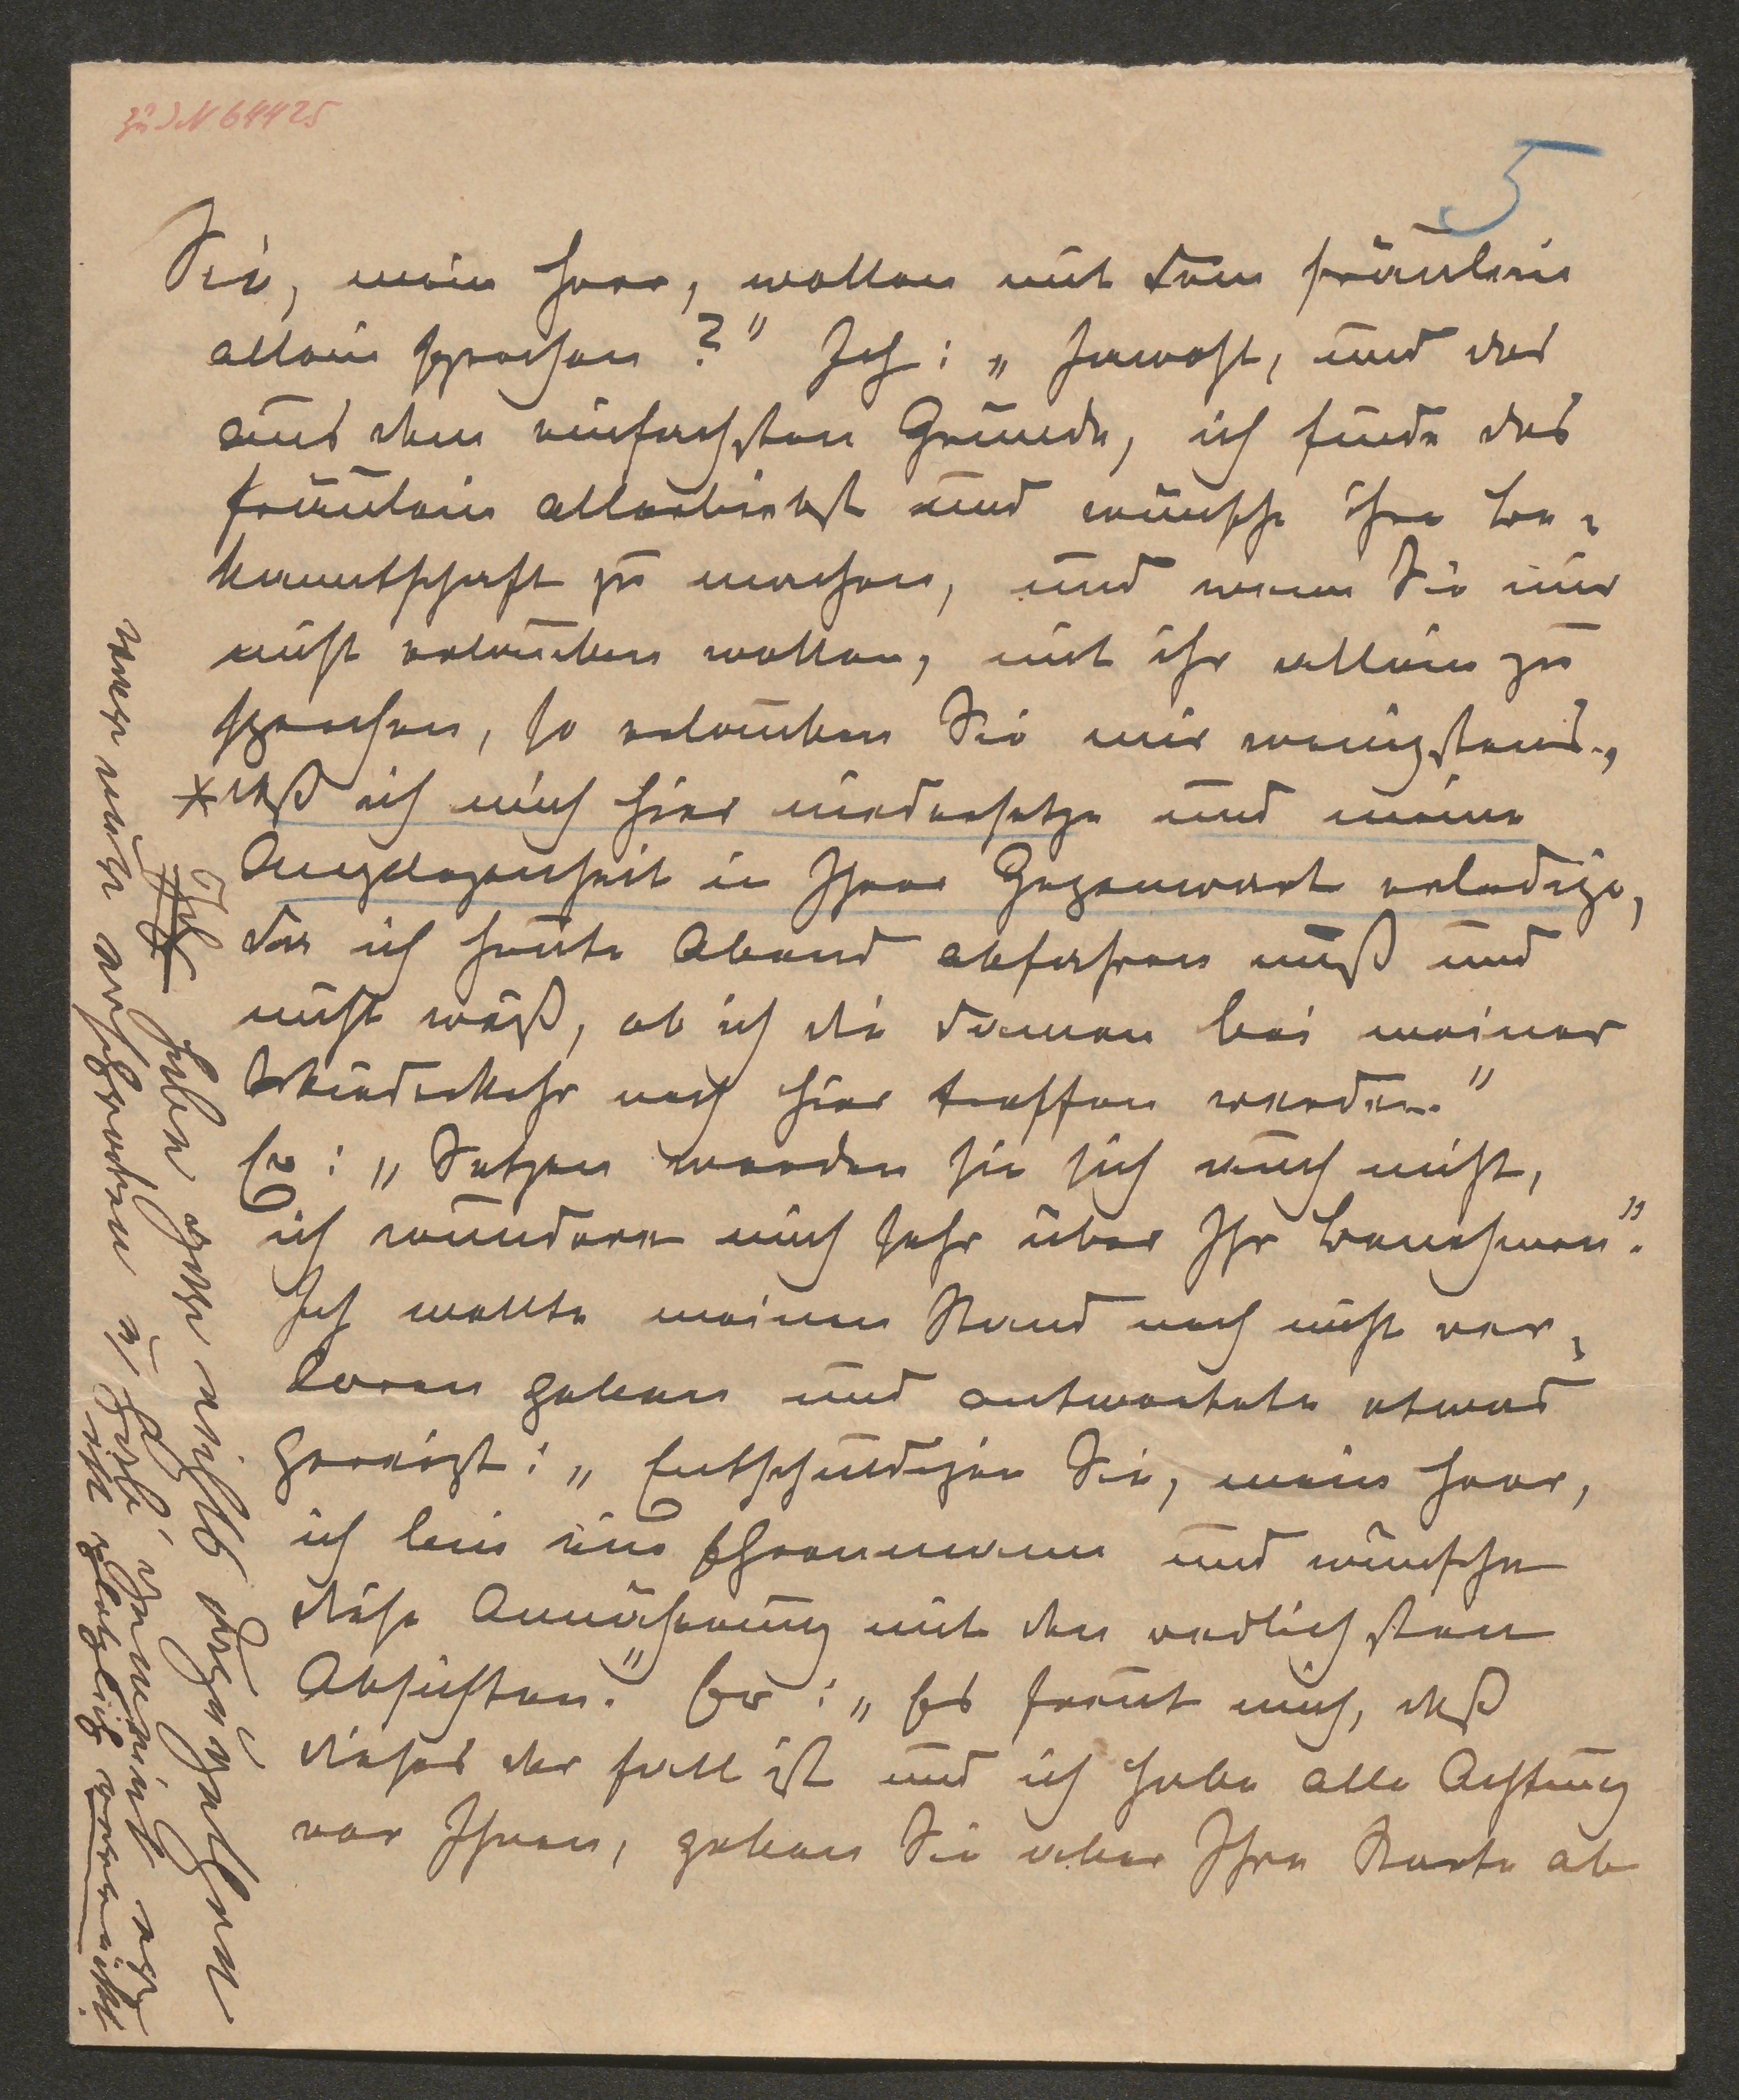 zu IN 64425
5
Sie, mein Herr, wollen mit dem Fräulein
allein sprechen?" Ich: „Jawohl, und das
aus dem einfachsten Grunde, ich finde das
Fräulein allerliebst und wünsche ihre Be-
kanntschaft zu machen, und wenn Sie mir
nicht erlauben wollen, mit ihr allein zu
sprechen, so erlauben Sie mir wenigstens,
* daß ich mich hier niedersetze und meine
Angelegenheit in Ihrer Gegenwart erledige,
da ich heute Abend abfahren muß und
nicht weiß, ob ich die Damen bei meiner
Wiederkehr noch hier treffen werde."
Er: „Setzen werden sie sich auch nicht,
ich wundere mich sehr über Ihr Benehmen".
Ich wollte meinen Stand noch nicht ver-
loren geben und antwortete etwas
gereizt: „Entschuldigen Sie, mein Herr,
ich bin ein Ehrenmann und wünsche
diese Annäherung mit den redlichsten
Absichten." Er: „Es freut mich, daß
dieses der Fall ist und ich habe alle Achtung
vor Ihnen, geben Sie aber Ihre Karte ab
* Ich habe gar nichts dazu